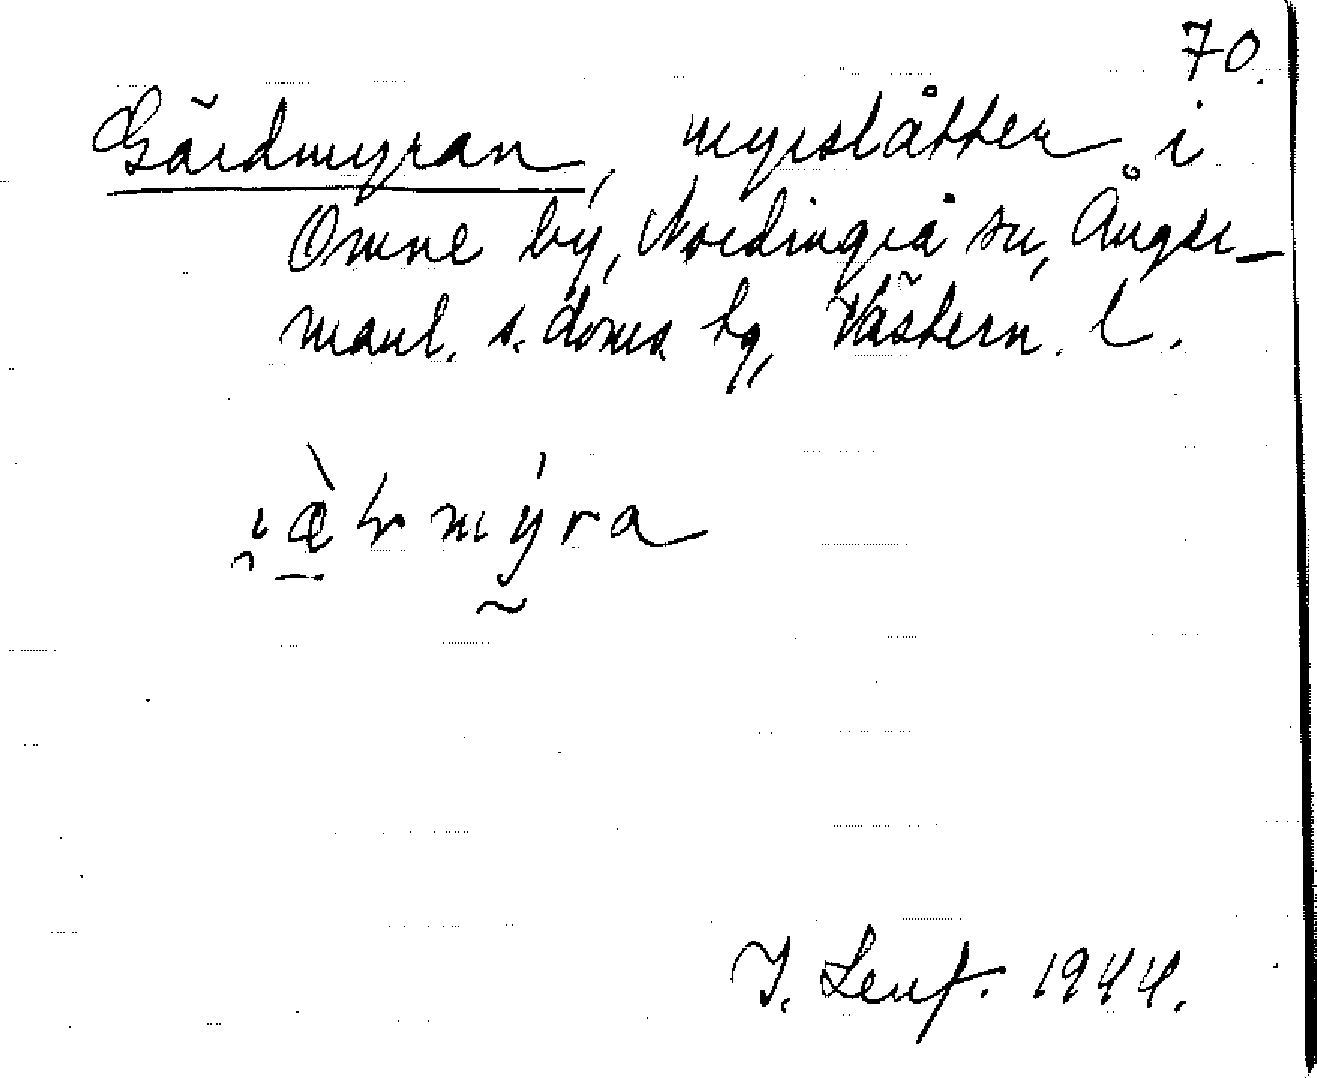 70.
Gärdmyran, myrslåtter i
Omne by, Nordingrå sn, Ånger-
manl. s. doms. hg, Västern. l.
mýra
J. Lenf. 1944.